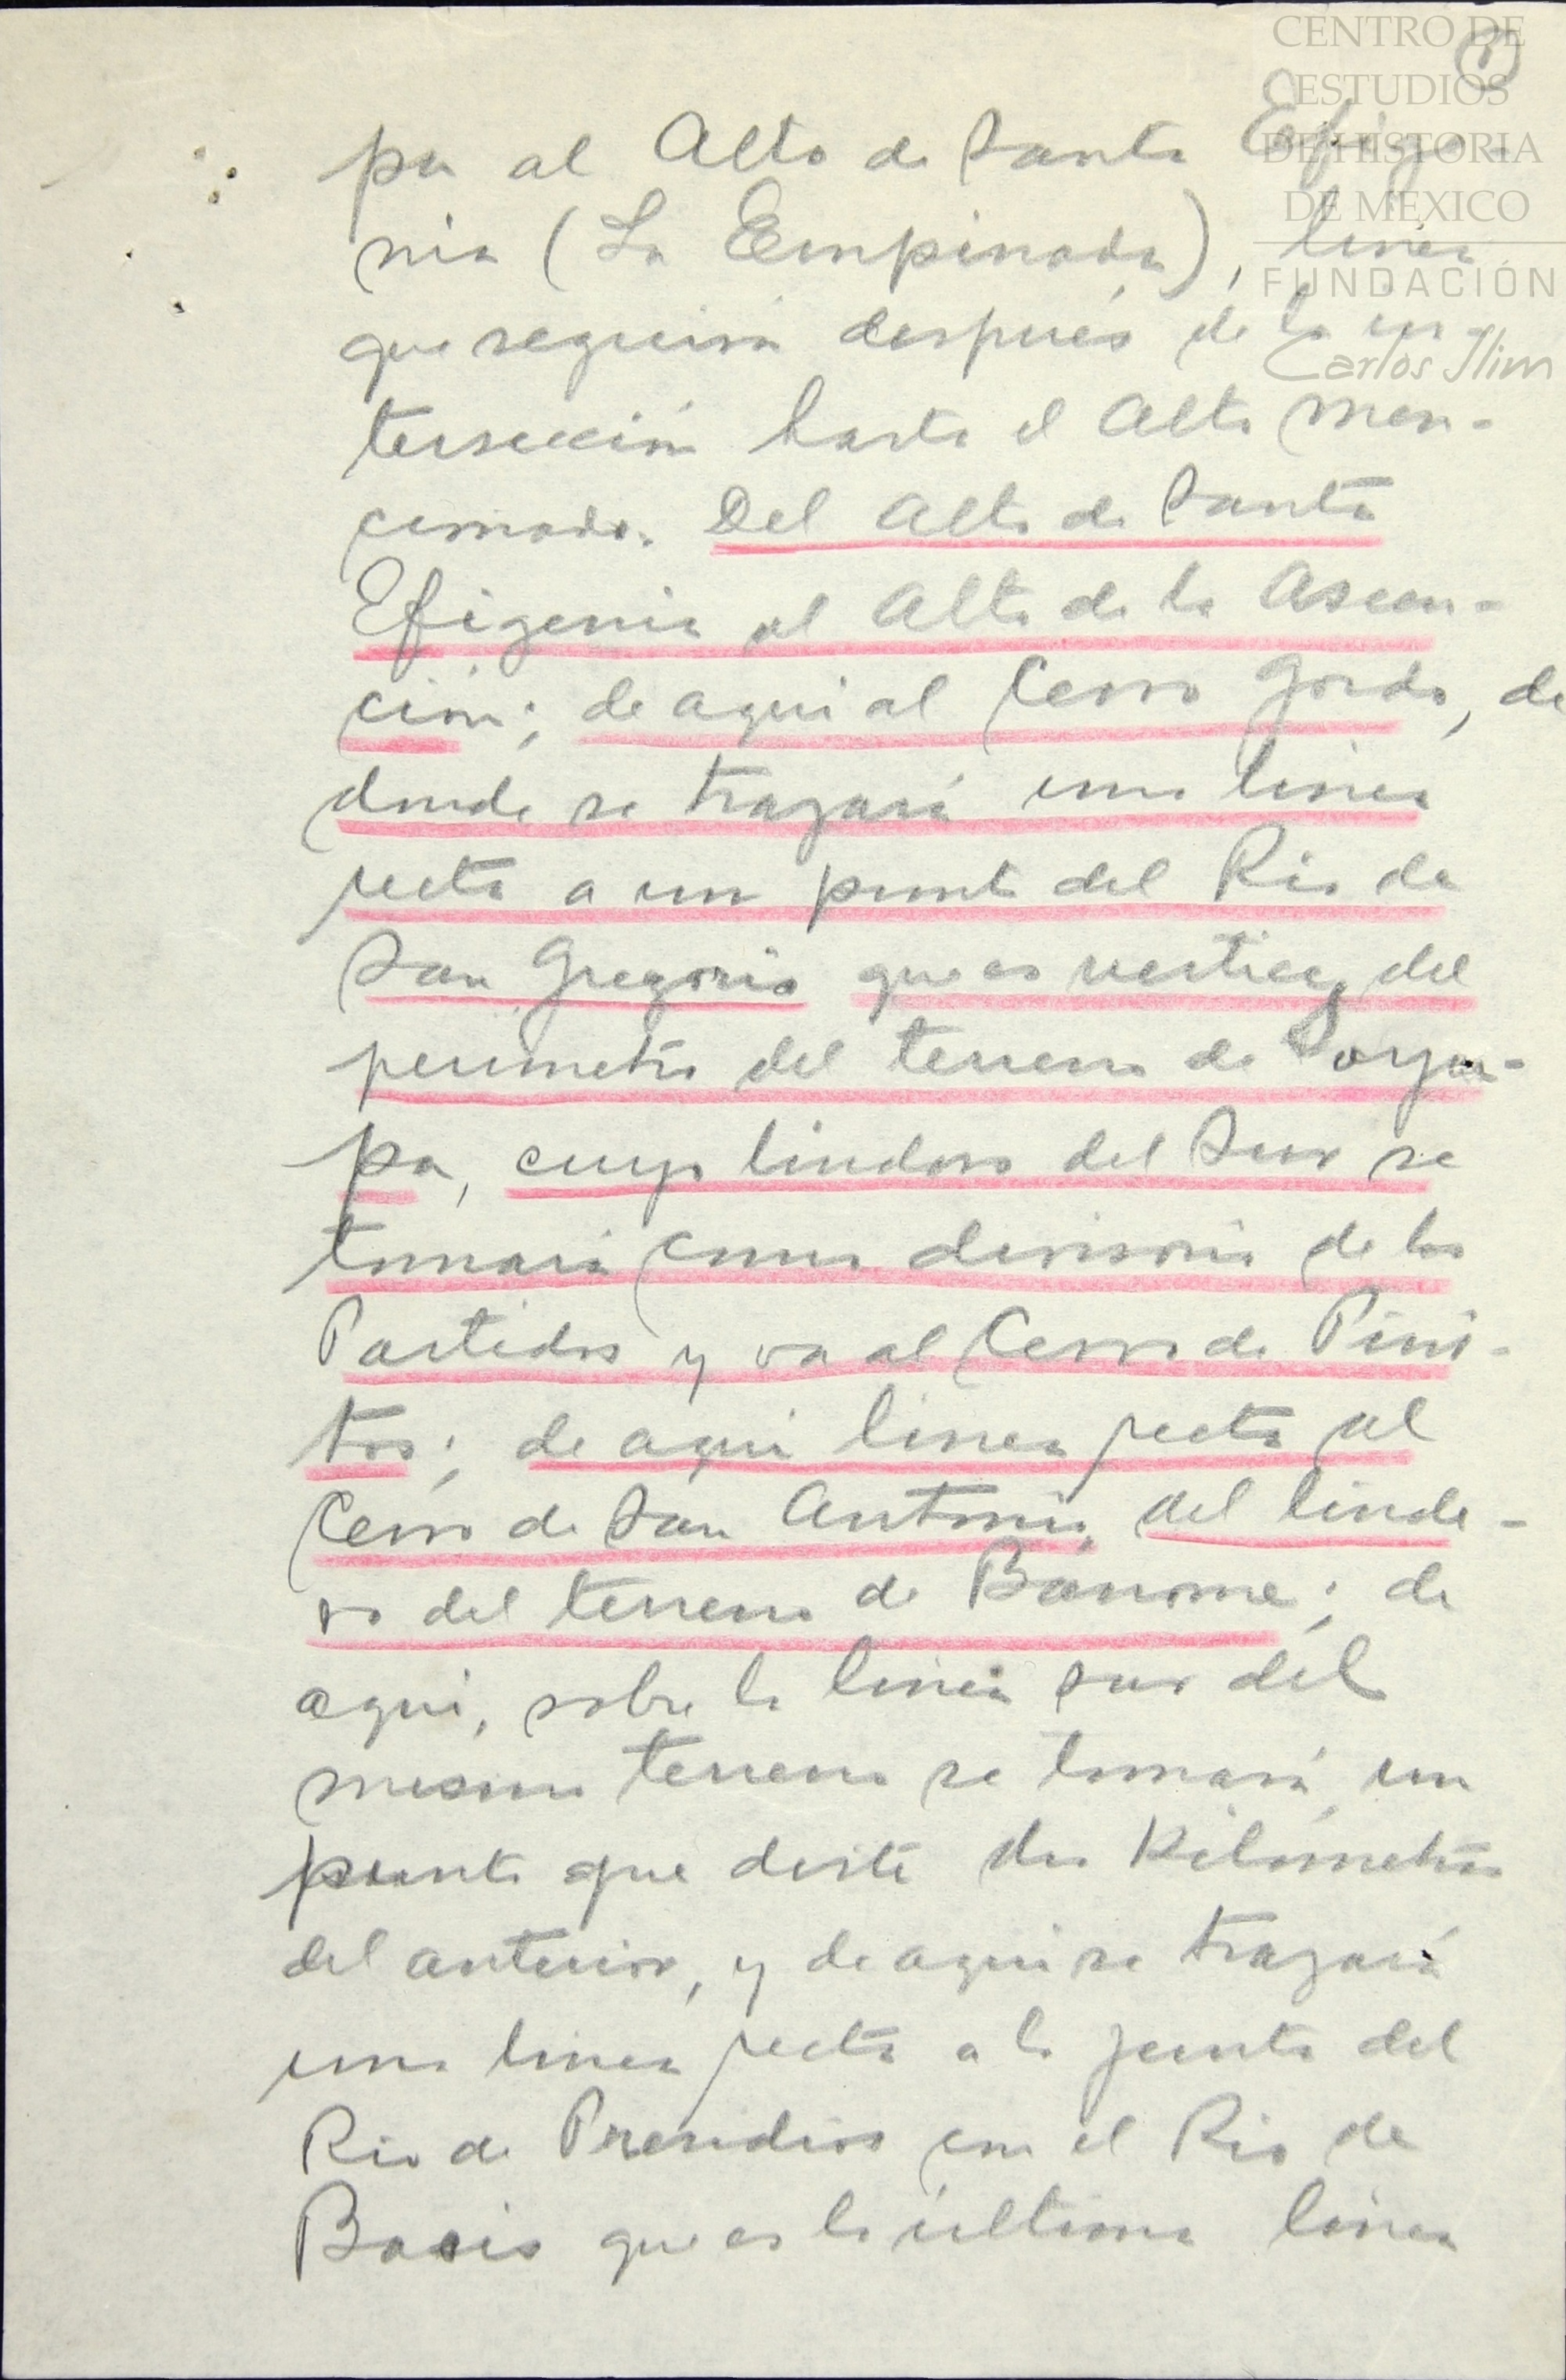 CENTRO DE
ESTUDIOS
DE HISTORIA
DE MEXICO
FUNDACIÓN
Carlos Slim
pa al Alto de Santa Efige-
nia (La Empinada), linea
que seguirá después de la in-
tersección hasta el Alto men-
cionado. Del Alto de Santa
Efigenia al Alto de la Ascen-
ción; de aqui al Cerro Gordo, de
donde se trazará una linea
recta a un punto del Rio de
San Gregorio que es vertice del
perimetro del terreno de Poyu-
pa, cuyo lindero del Sur se
tomará como divisoria de los
Partidos y va al Cerro de Pini-
tos; de aqui linea recta al
Cerro de San Antonio, del linde-
ro del terreno de Bánome; de
aqui, sobre la linea sur del
mismo terreno se tomará un
punto que diste dos Kilometros
del anterior, y de aqui se trazará
una linea recta a la junta del
Rio de Presidios con el Rio de
Basis que es la última linea